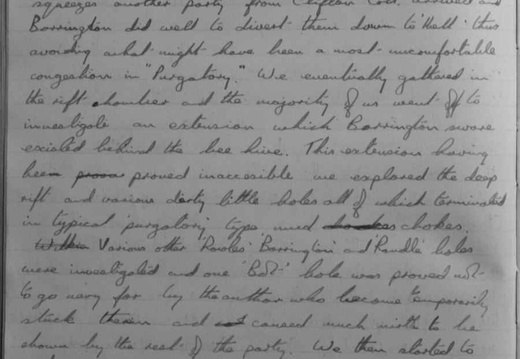 squeezes another party from Clifton Coll. arrived and
Barrington did well to divert them down to 'hell' thus
avoiding what might have been a most uncomfortable
congestion in "Purgatory." We eventually gathered in
the rift chamber and the majority of us went off to
investigate an extension which Barrington swore
existed behind the bee hive. This extension having
been proved inaccessible we explored the deep
rift and various dirty little holes all of which terminated
in typical 'purgatory' type mud chokes.
Various other 'Rawles' 'Barrington' and 'Randle' holes
were investigated and one hole was proved not
to go very far by the author who became temporarily
stuck therein and caused much mirth to be
shown by the rest of the party. We then started to